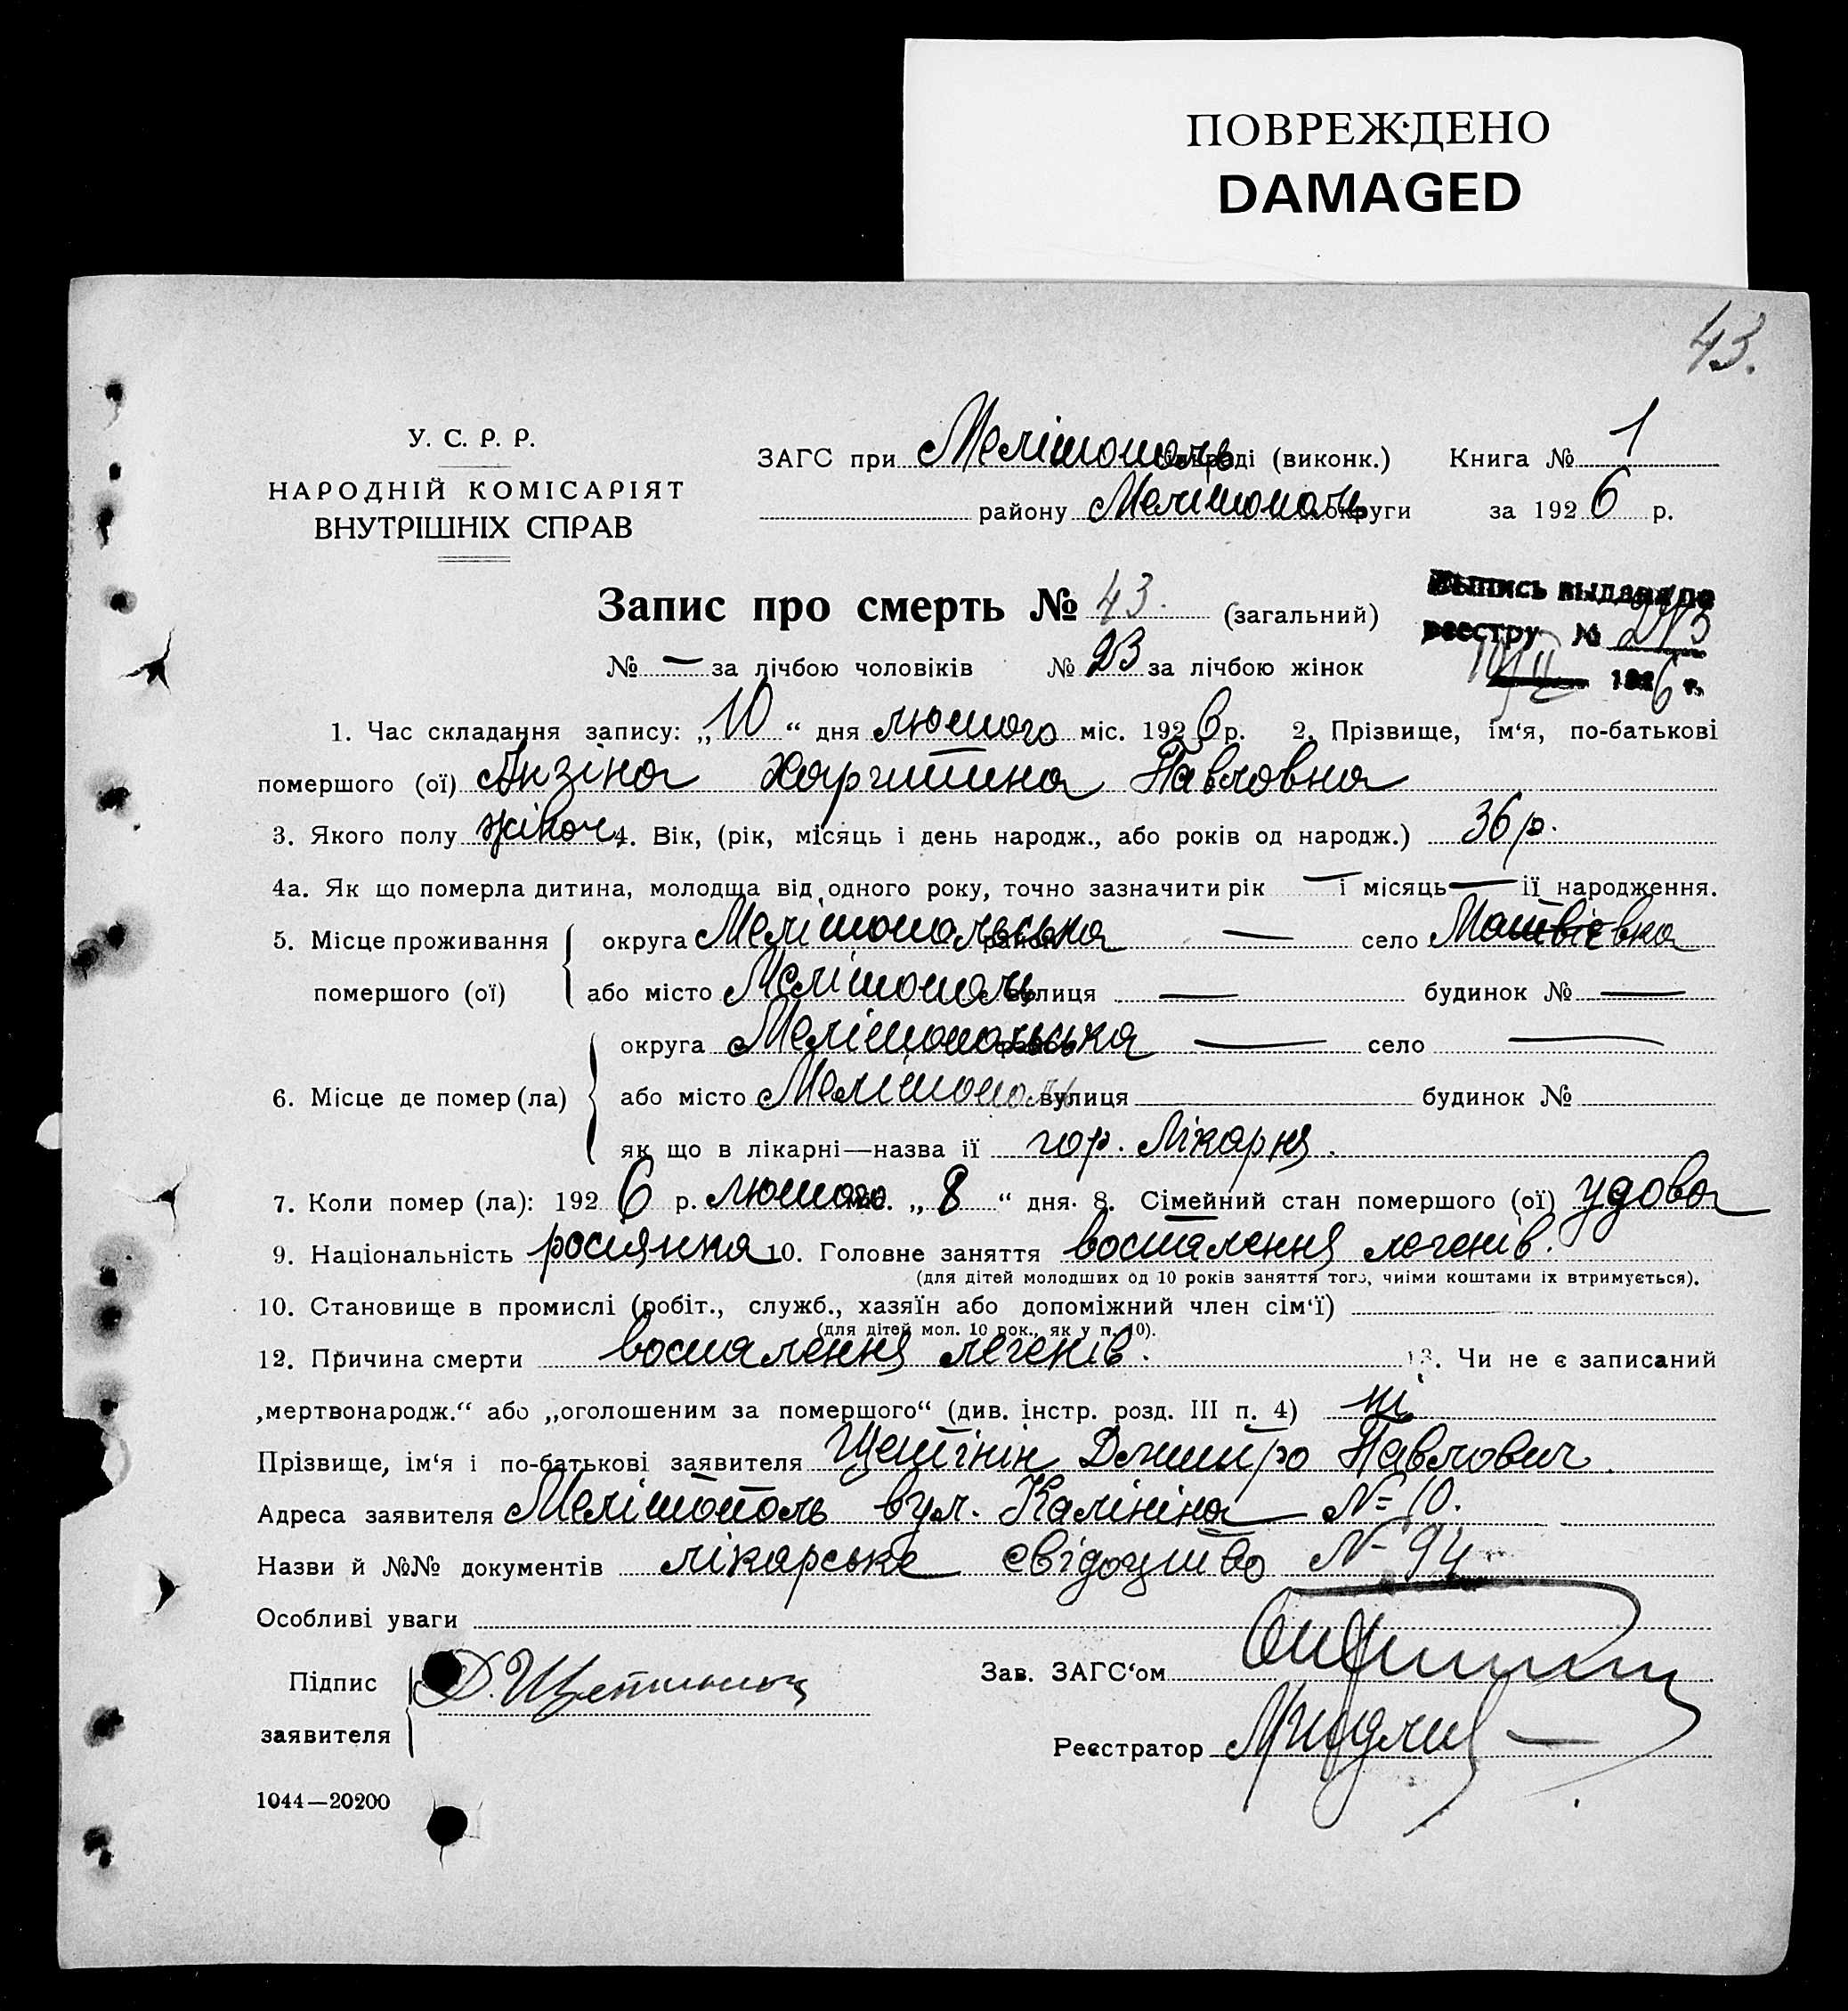 ПОВРЕЖДЕНО
DAMAGED
43.
У. С. Р. Р.
НАРОДНІЙ КОМІСАРІЯТ
ВНУТРІШНІХ СПРАВ
ЗАГС при Мелітополь раді (виконк.) Книга № 1
району Мелітополь округи за 1926 р.
Запис про смерть № 43. (загальний)
Выпись выдана по
реестру №
1926 г.
№ — за лічбою чоловіків № 23 за лічбою жінок
1. Час складання запису: „10“ дня лютого міс. 1926 р. 2. Прізвище, ім‘я, по-батькові
помершого (ої) Анзіна Харитина Павловна
3. Якого полу жіноч. 4. Вік, (рік, місяць і день народж., або років од народж.) 36 р.
4а. Як що померла дитина, молодша від одного року, точно зазначити рік — і місяць — ії народження.
5. Місце проживання помершого (ої) округа Мелітопольська район — село Матвієвка
або місто Мелітополь вулиця — будинок № —
6. Місце де помер (ла) округа Мелітопольська — село —
або місто Мелітополь вулиця будинок №
як що в лікарні—назва ії гор. Лікарня.
7. Коли помер (ла): 1926 р. лютого міс. „8“ дня. 8. Сімейний стан помершого (ої) удова
9. Національність росіянка 10. Головне заняття воспалення легенів.
(для дітей молодших од 10 років заняття того, чиїми коштами іх втримується).
10. Становище в промислі (робіт., служб., хазяїн або допоміжний член сім‘ї)
(для дітей мол. 10 рок., як у п. 10).
12. Причина смерти воспалення легенів. 13. Чи не є записаний
„мертвонародж.“ або „оголошеним за помершого“ (див. інстр. розд. III п. 4) ні
Прізвище, ім‘я і по-батькові заявителя Щетінін Дмитро Павлович.
Адреса заявителя Мелітополь вул. Калініна № 10.
Назви й №№ документів лікарське свідоцтво № 94
Особливі уваги
Підпис заявителя Д. Щетинин
Зав. ЗАГС‘ом
Реєстратор
1044—20200